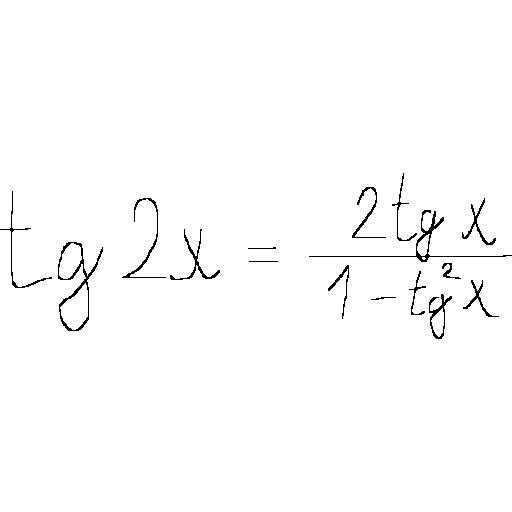 tg 2x = \frac{2 tg x}{1 - tg^2 x}